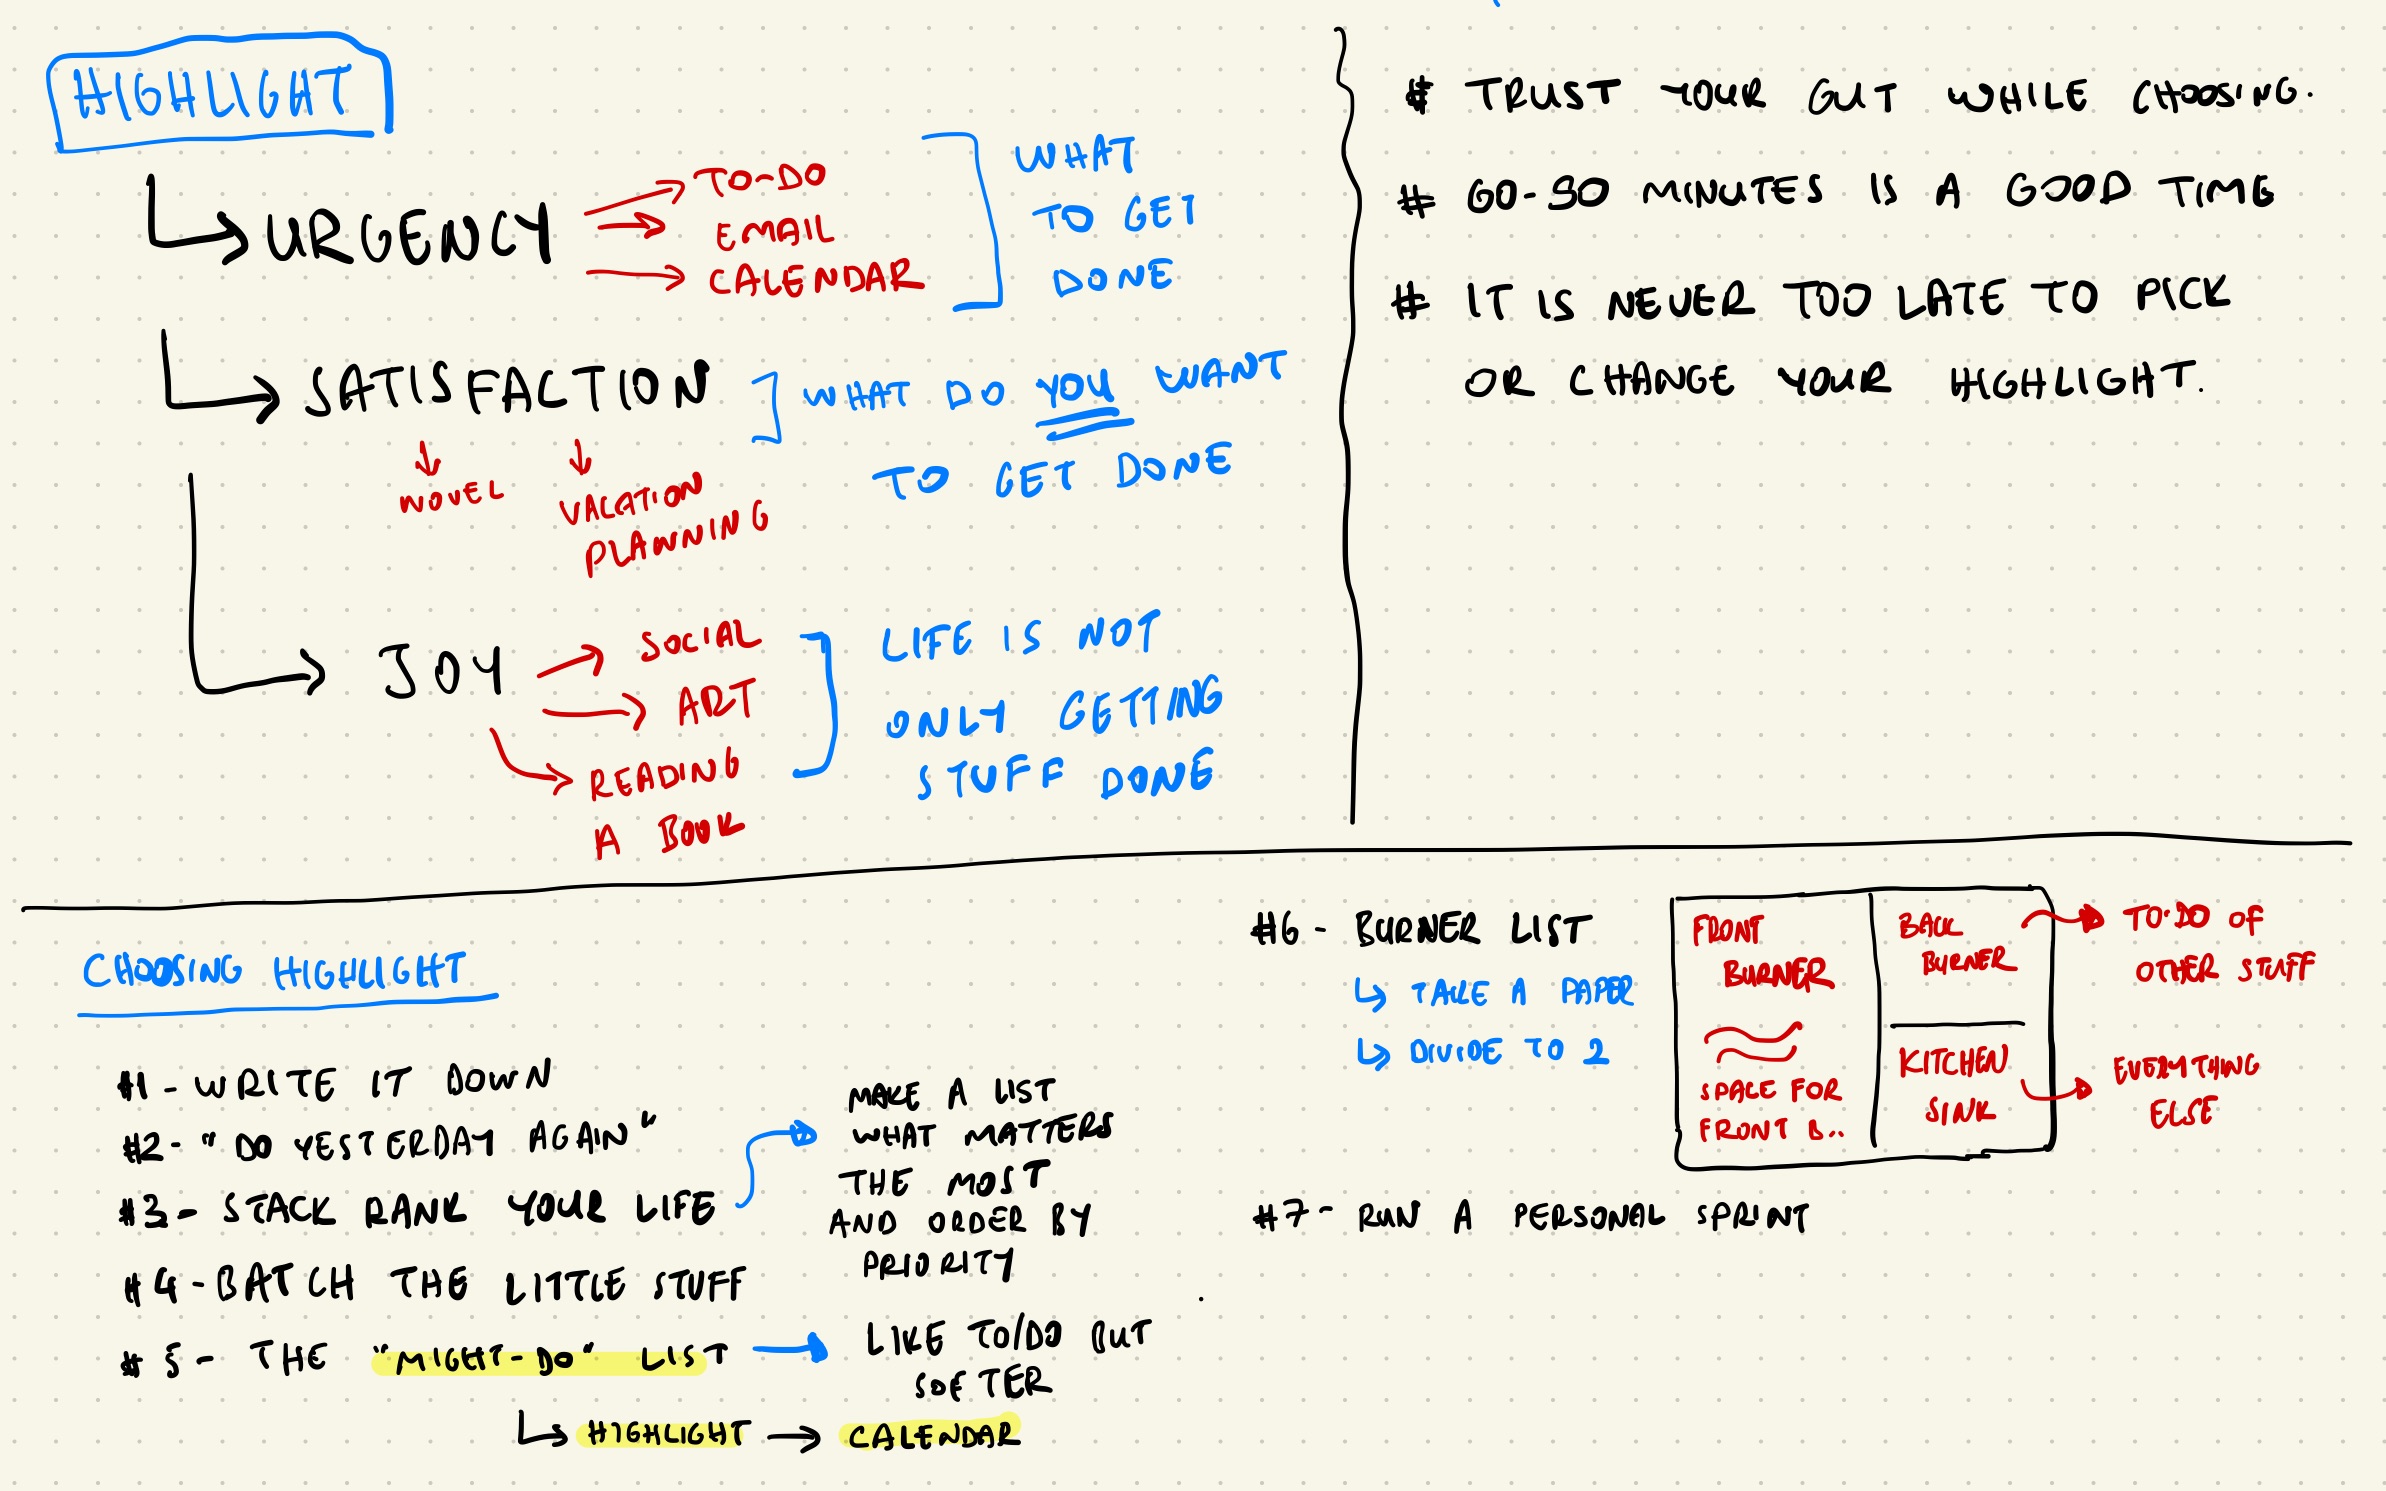 HIGHLIGHT
URGENCY
TO-DO
EMAIL
CALENDAR
WHAT
TO GET
DONE
SATISFACTION
NOVEL
VACATION
PLANNING
WHAT DO YOU WANT
TO GET DONE
JOY
SOCIAL
ART
READING
A BOOK
LIFE IS NOT
ONLY GETTING
STUFF DONE
# TRUST YOUR GUT WHILE CHOOSING.
# 60-90 MINUTES IS A GOOD TIME
# IT IS NEVER TOO LATE TO PICK
OR CHANGE YOUR HIGHLIGHT.
CHOOSING HIGHLIGHT
#1 - WRITE IT DOWN
#2 - "DO YESTERDAY AGAIN"
#3 - STACK RANK YOUR LIFE
MAKE A LIST
WHAT MATTERS
THE MOST
AND ORDER BY
PRIORITY
#4 - BATCH THE LITTLE STUFF
#5 - THE "MIGHT-DO" LIST
LIKE TO/DO BUT
SOFTER
HIGHLIGHT → CALENDAR
#6 - BURNER LIST
TAKE A PAPER
DIVIDE TO 2
FRONT
BURNER
SPACE FOR
FRONT B..
BACK
BURNER
TO-DO OF
OTHER STUFF
KITCHEN
SINK
EVERYTHING
ELSE
#7 - RUN A PERSONAL SPRINT